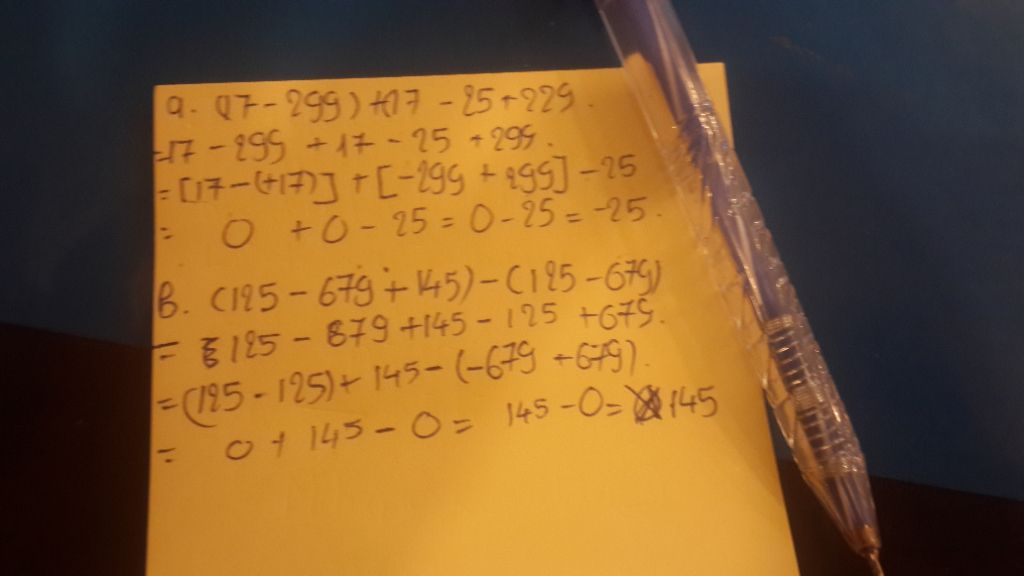 a. (17 - 299) + (17 - 25 + 229.
=17 - 299 + 17 - 25 + 299.
= [17 - (+17)] + [-299 + 299] - 25
= 0 + 0 - 25 = 0 - 25 = -25.
b. (125 - 679 + 145) - (125 - 679)
= 125 - 879 + 145 - 125 + 679.
= (125 - 125) + 145 - (-679 + 679).
= 0 + 145 - 0 = 145 - 0 = 145